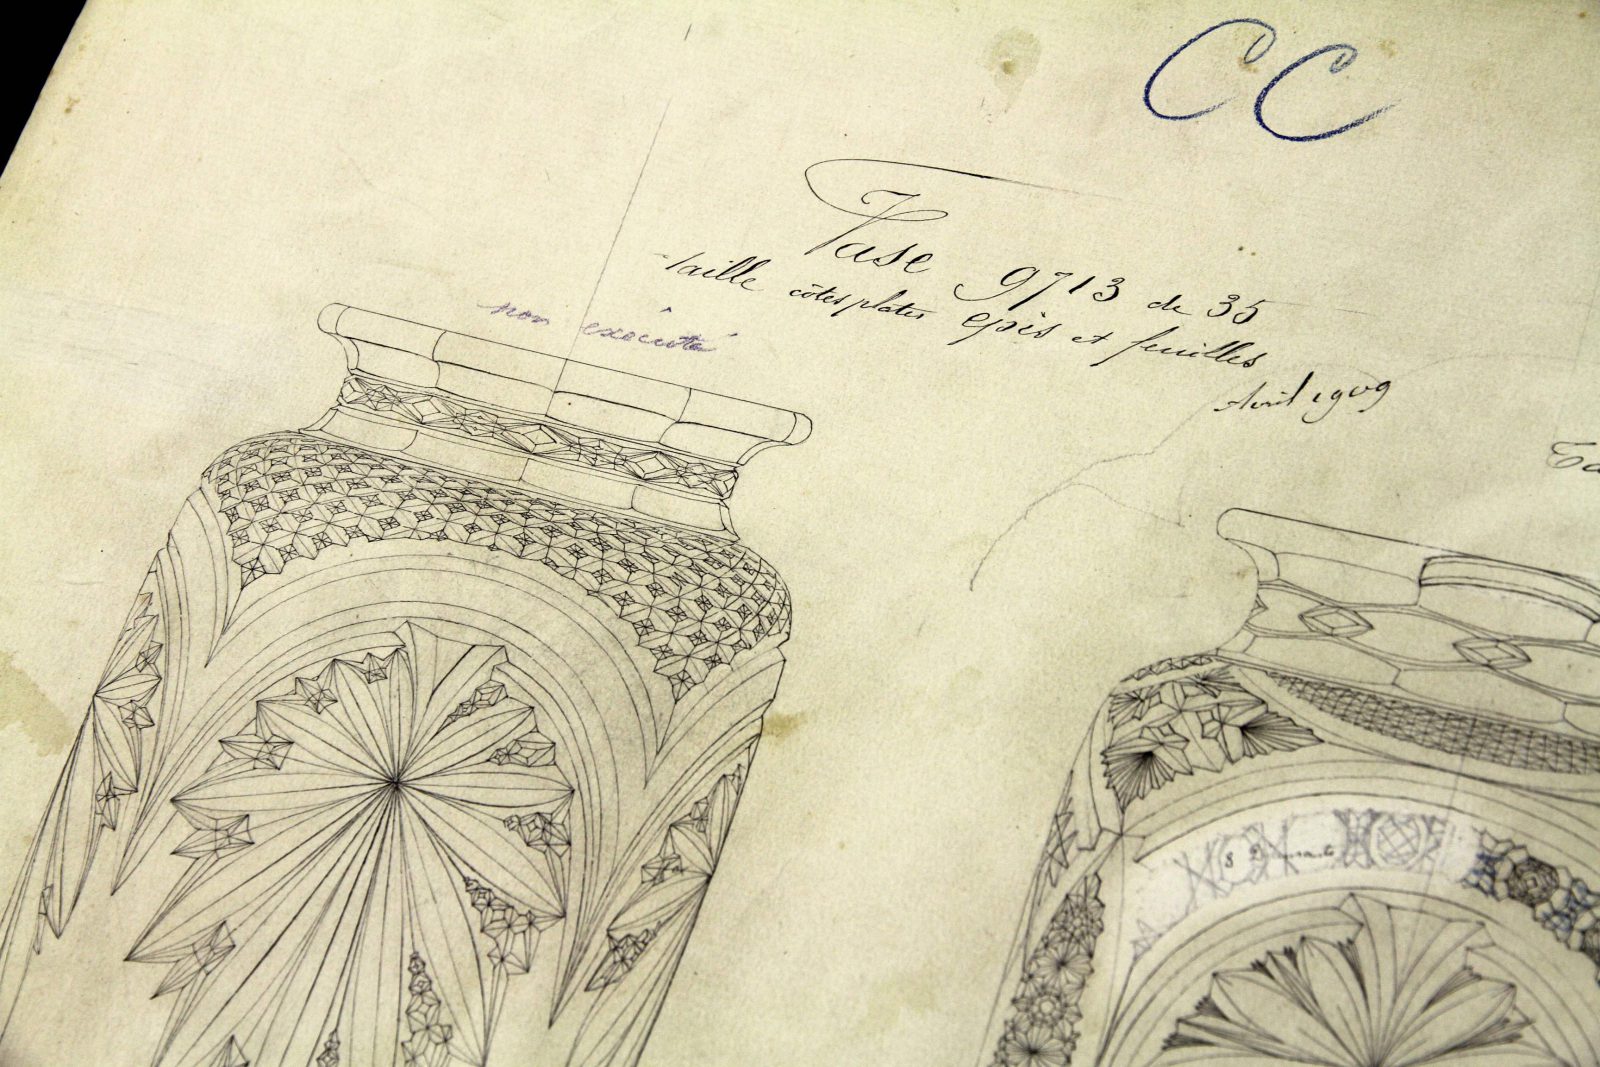 CC
Vase 9713 de 35
taille côtes plates épis et feuilles
Avril 1909
non exécuté